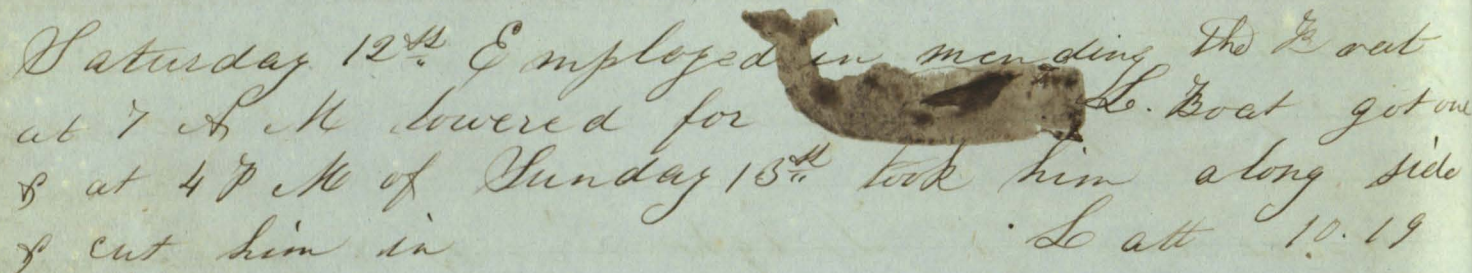 Saturday 12th Employed in mending the Boat
at 7 A M lowered for L. Boat got one
& at 4 P M of Sunday 13th took him along side
& cut him in Latt 10.19